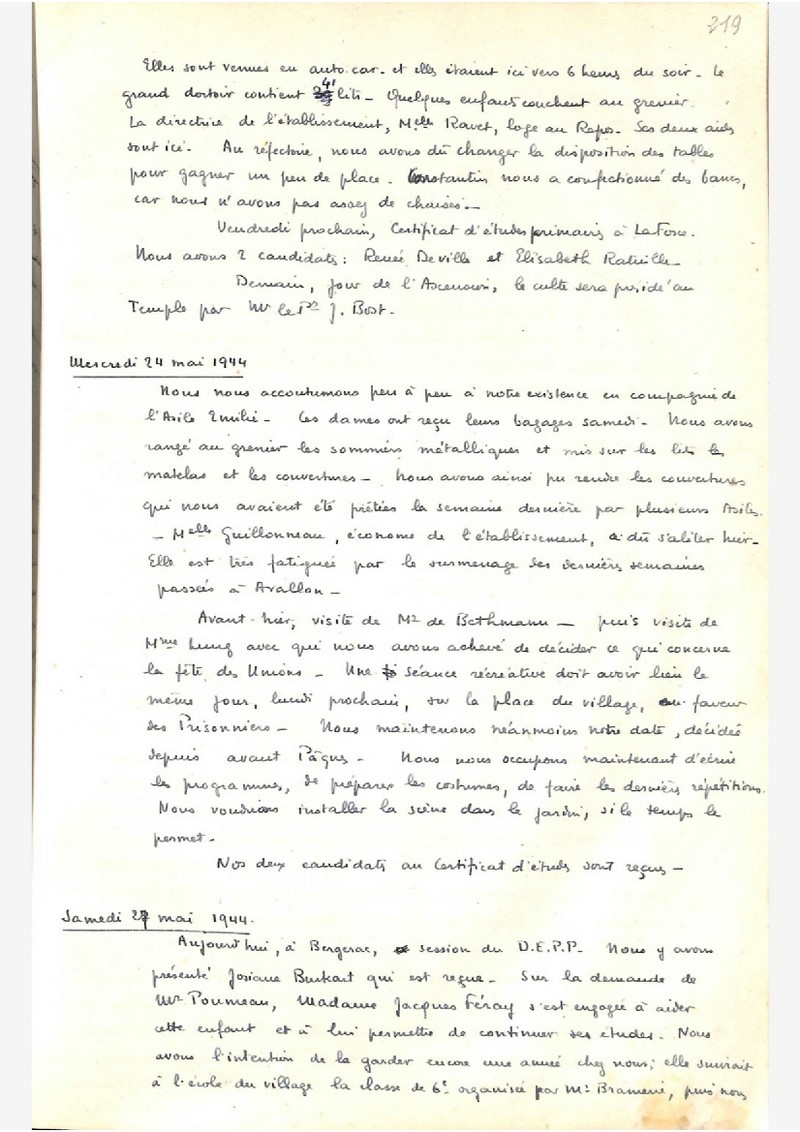 219
Elles sont venues en auto car - et elles étaient ici vers 6 heures du soir - Le
grand dortoir contient 41 lits - Quelques enfants couchent au grenier.
La directrice de l'établissement, Melle Ravet, loge au Repos. Ses deux aides
sont ici. Au réfectoire, nous avons dû changer la disposition des tables
pour gagner un peu de place. Constantin nous a confectionné des bancs,
car nous n'avons pas assez de chaises -
Vendredi prochain, Certificat d'études primaires à La Force.
Nous avons 2 candidats : Renée Deville et Elisabeth
Demain, jour de l'Ascension, le culte sera présidé au
Temple par Mr le Pr J. Bost.
Mercredi 24 mai 1944
Nous nous accoutumons peu à peu à notre existence en compagnie de
l'Asile Emilie - Ces dames ont reçu leurs bagages samedi - Nous avons
rangé au grenier les sommiers métalliques et mis sur les lits les
matelas et les couvertures - Nous avons ainsi pu rendre les couvertures
qui nous avaient été prêtées la semaine dernière par plusieurs Asiles.
- Melle Guillonneau, économe de l'établissement, a dû s'aliter hier -
Elle est très fatiguée par le surmenage des dernières semaines
passées à Avallon -
Avant-hier, visite de Mr de Bethmann - puis visite de
Mme Lung avec qui nous avons achevé de décider ce qui concerne
la fête des Unions - Une séance récréative doit avoir lieu le
même jour, lundi prochain, sur la place du village, en faveur
des Prisonniers - Nous maintenons néanmoins notre date, décidée
depuis avant Pâques - Nous nous occupons maintenant d'écrire
les programmes, de préparer les costumes, de faire les dernières répétitions.
Nous voudrions installer la scène dans le jardin, si le temps le
permet -
Nos deux candidats au Certificat d'études sont reçus -
Samedi 27 mai 1944.
Aujourd'hui, à Bergerac, session du D.E.P.P. Nous y avons
présenté Josiane Burkart qui est reçue - Sur la demande de
Mr Poumeau, Madame Jacques Féray s'est engagée à aider
cette enfant et à lui permettre de continuer ses études. Nous
avons l'intention de la garder encore une année chez nous ; elle suivrait
à l'école du village la classe de 6e organisée par Mr , puis nous